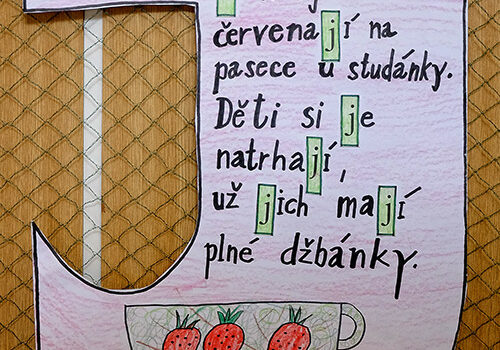 červenají na
pasece u studánky.
Děti si je
natrhají,
už jich mají
plné džbánky.